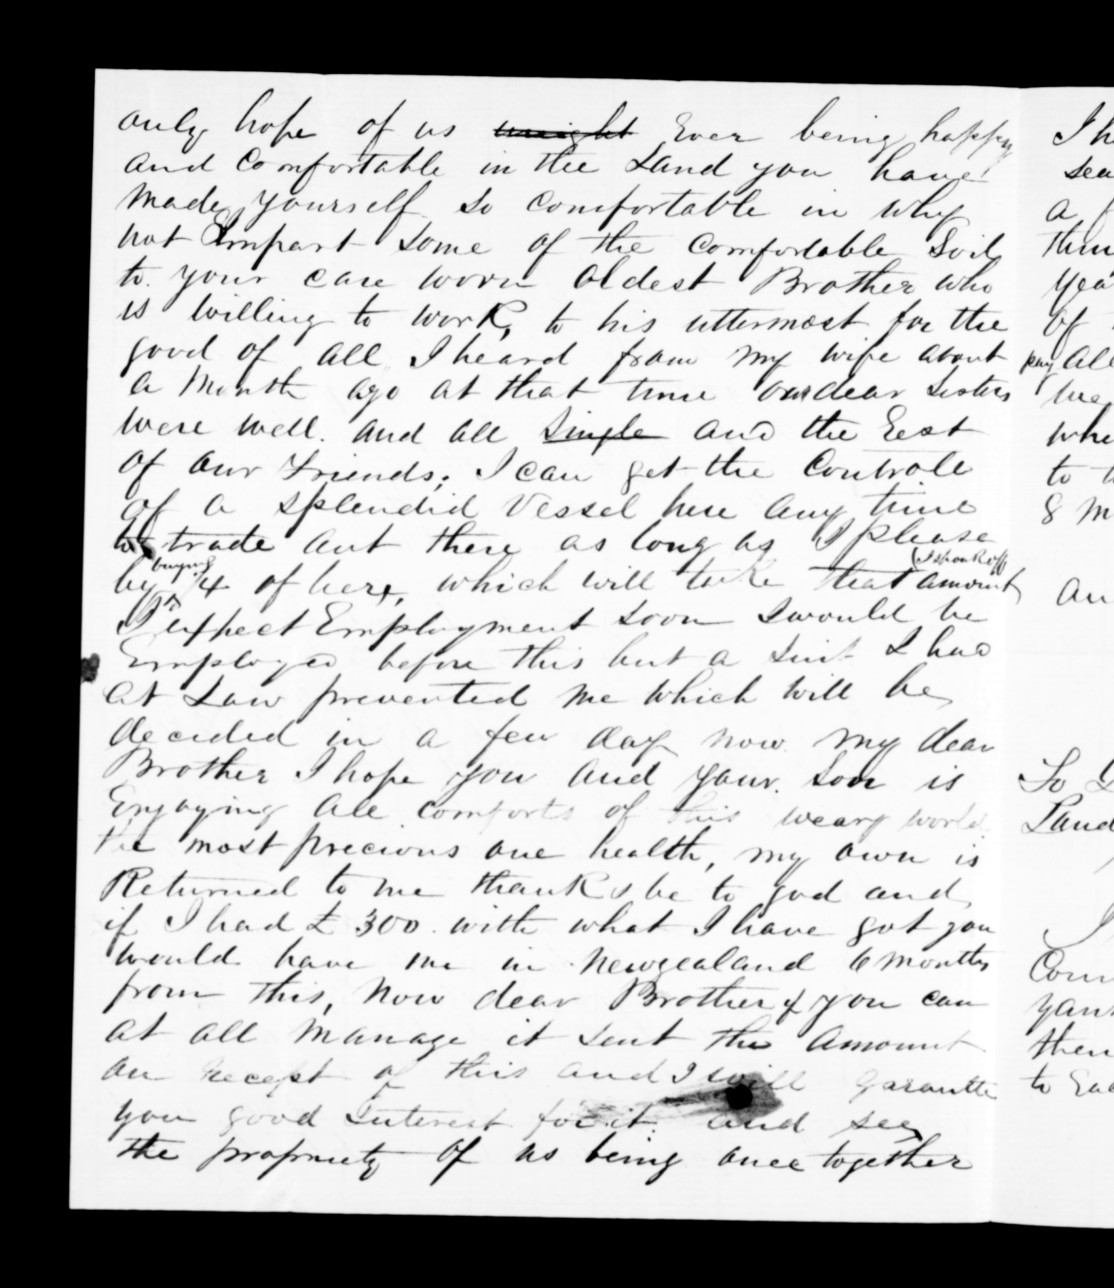 only hope of us might Ever being happy
and Comfortable in the Land you have
made yourself so Comfortable in why
not Impart some of the Comfortable Soil
to your care worn oldest Brother who
is willing to work to his uttermost for the
good of all I heard from my wife about
a Month ago at that time our dear Sisters
were well. and all Single and the Rest
of our Friends; I can get the Controle
of a splendid Vessel here any time
to trade out there as long as I please
by buying 1/4 of her, which will take that amount
I expect Employment soon I would be
Employed before this but a Suit I had
at Law prevented me which will be
decided in a few day now my dear
Brother I hope you and your Son is
Enjoying all comforts of this weary world
the most precious one health, my own is
Returned to me thanks be to god and
if I had £300 with what I have got you
would have me in Newzealand 6 months
from this, Now dear Brother if you can
at all manage it sent the Amount
on Recept of this and I will garantte
you good Interest for it and see
the propriety of us being once together
I h
sea
a
thin
yea
of
pay all
we
whe
to
8 m
an
To
Land
Com
your
then
to